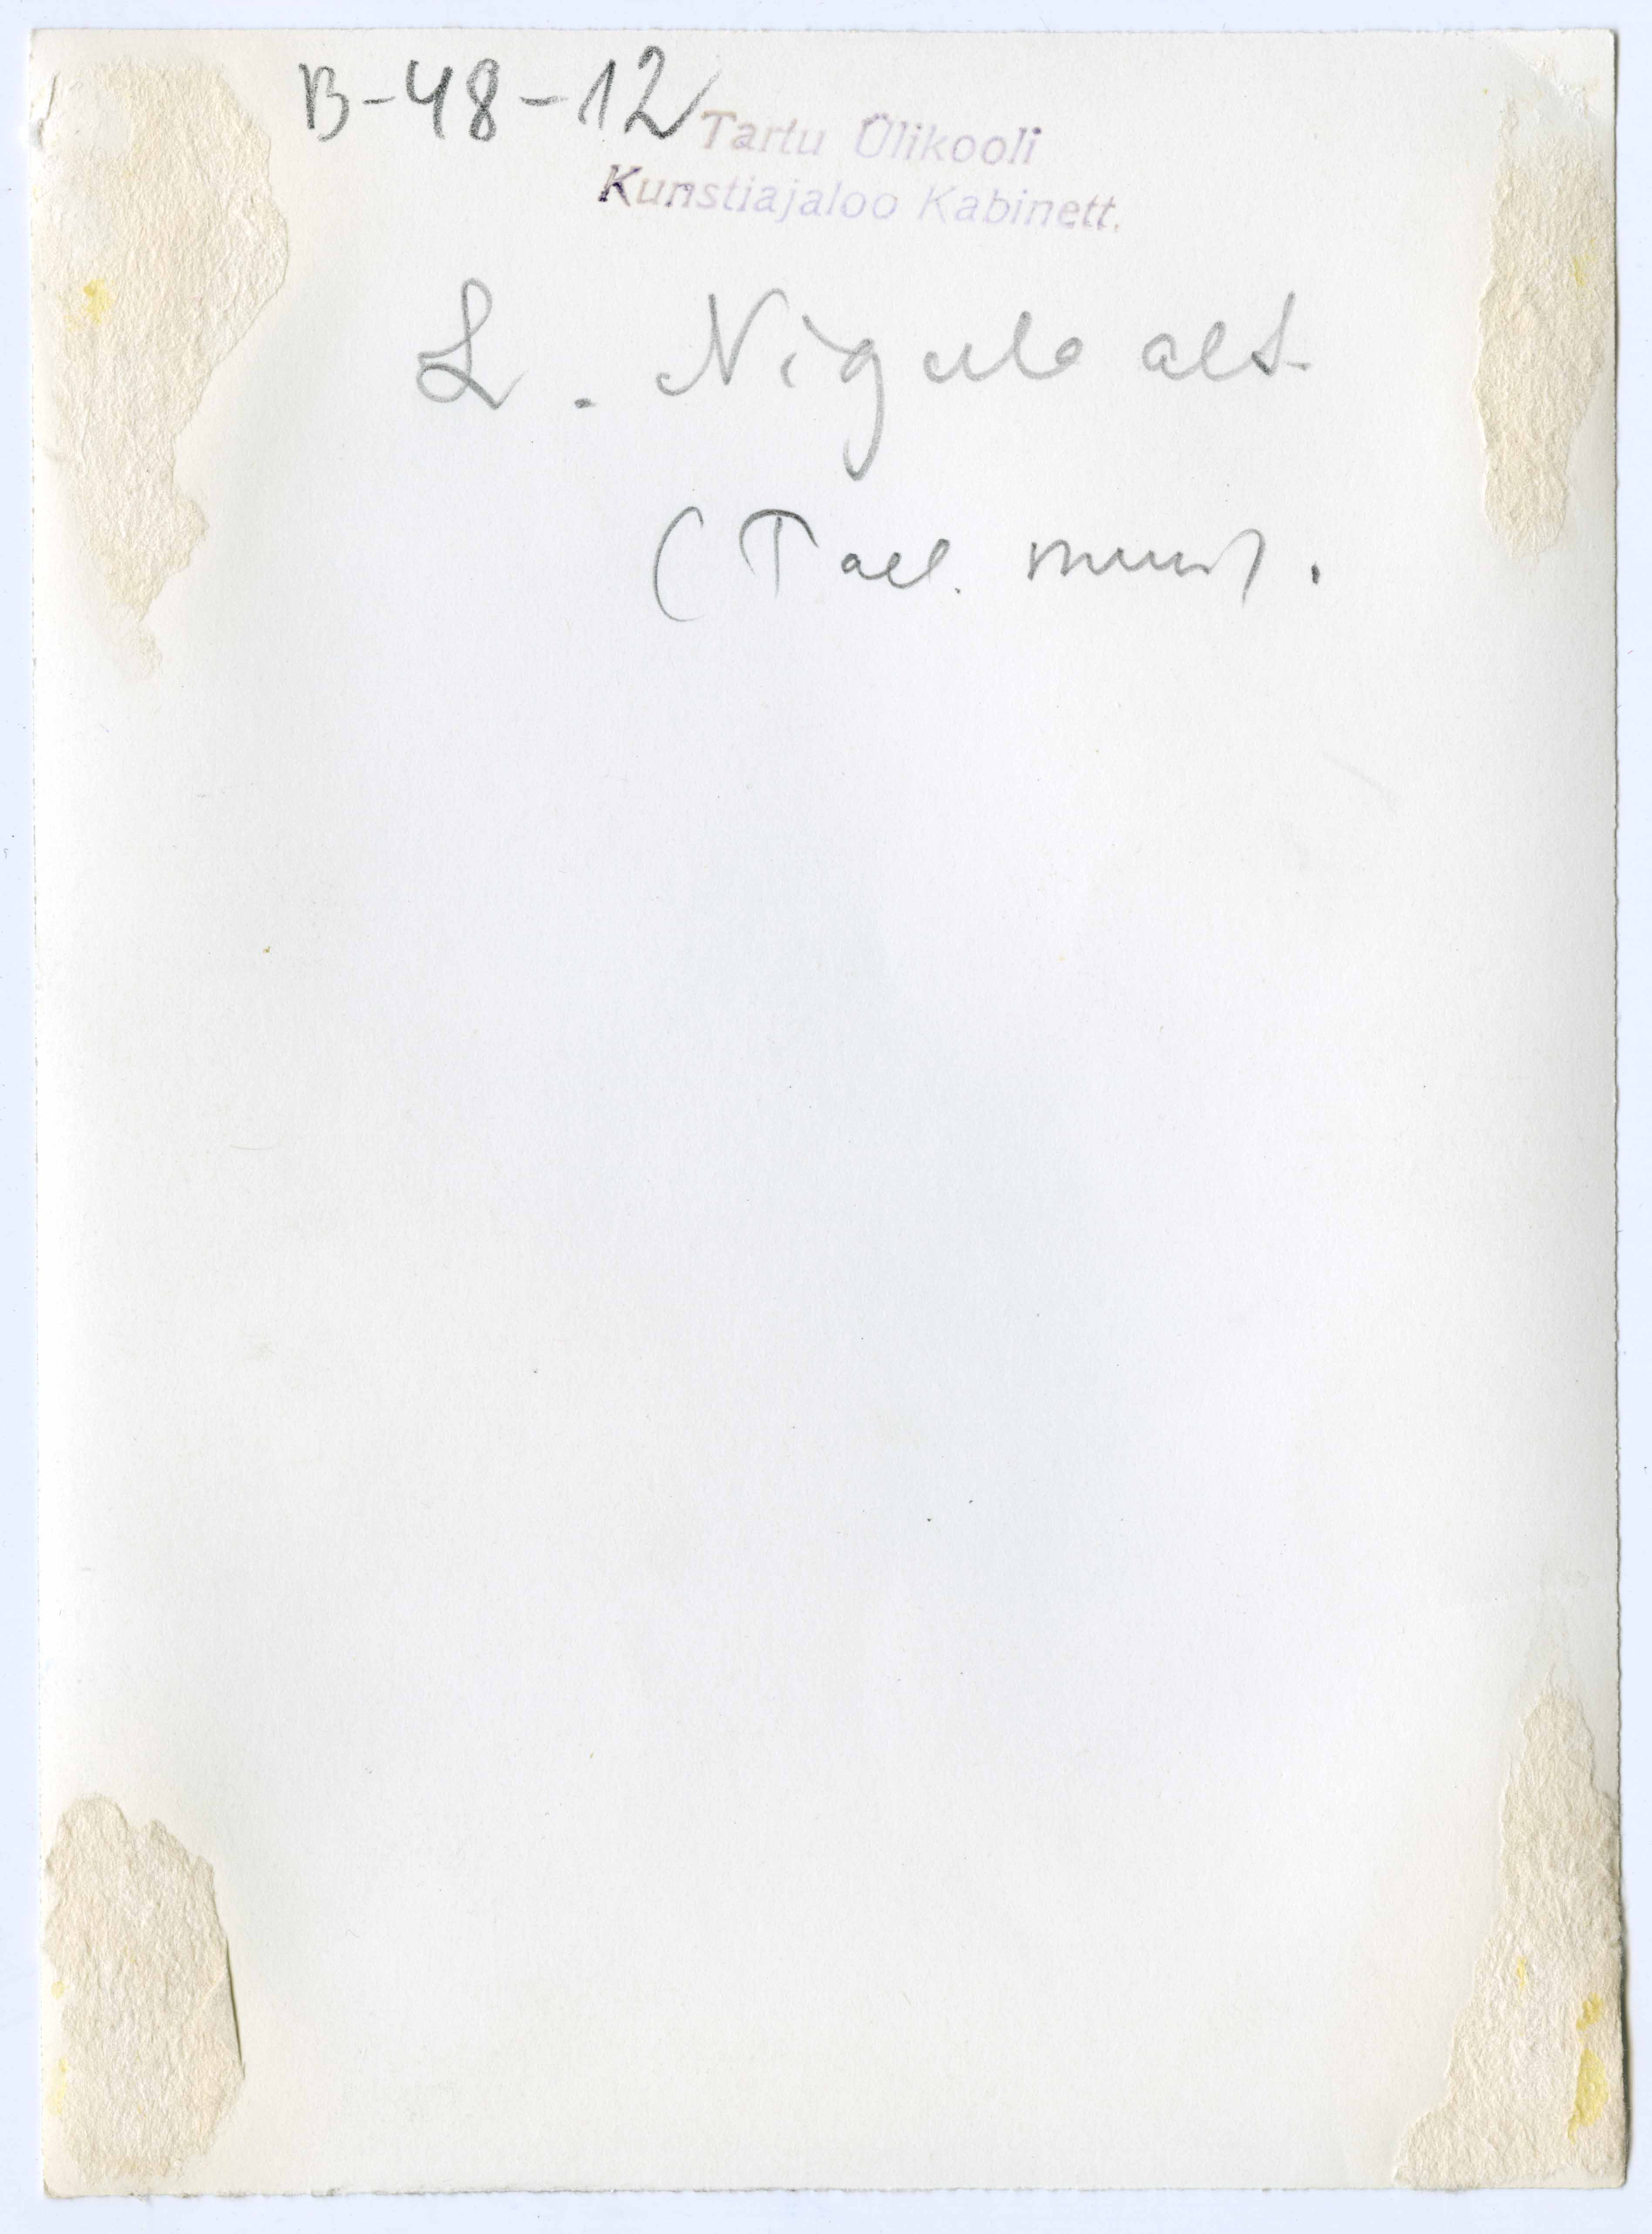 B-48-12
Tartu Ülikooli
Kunstiajaloo Kabinett.
L. Nigula alt.
(Tall. muus).